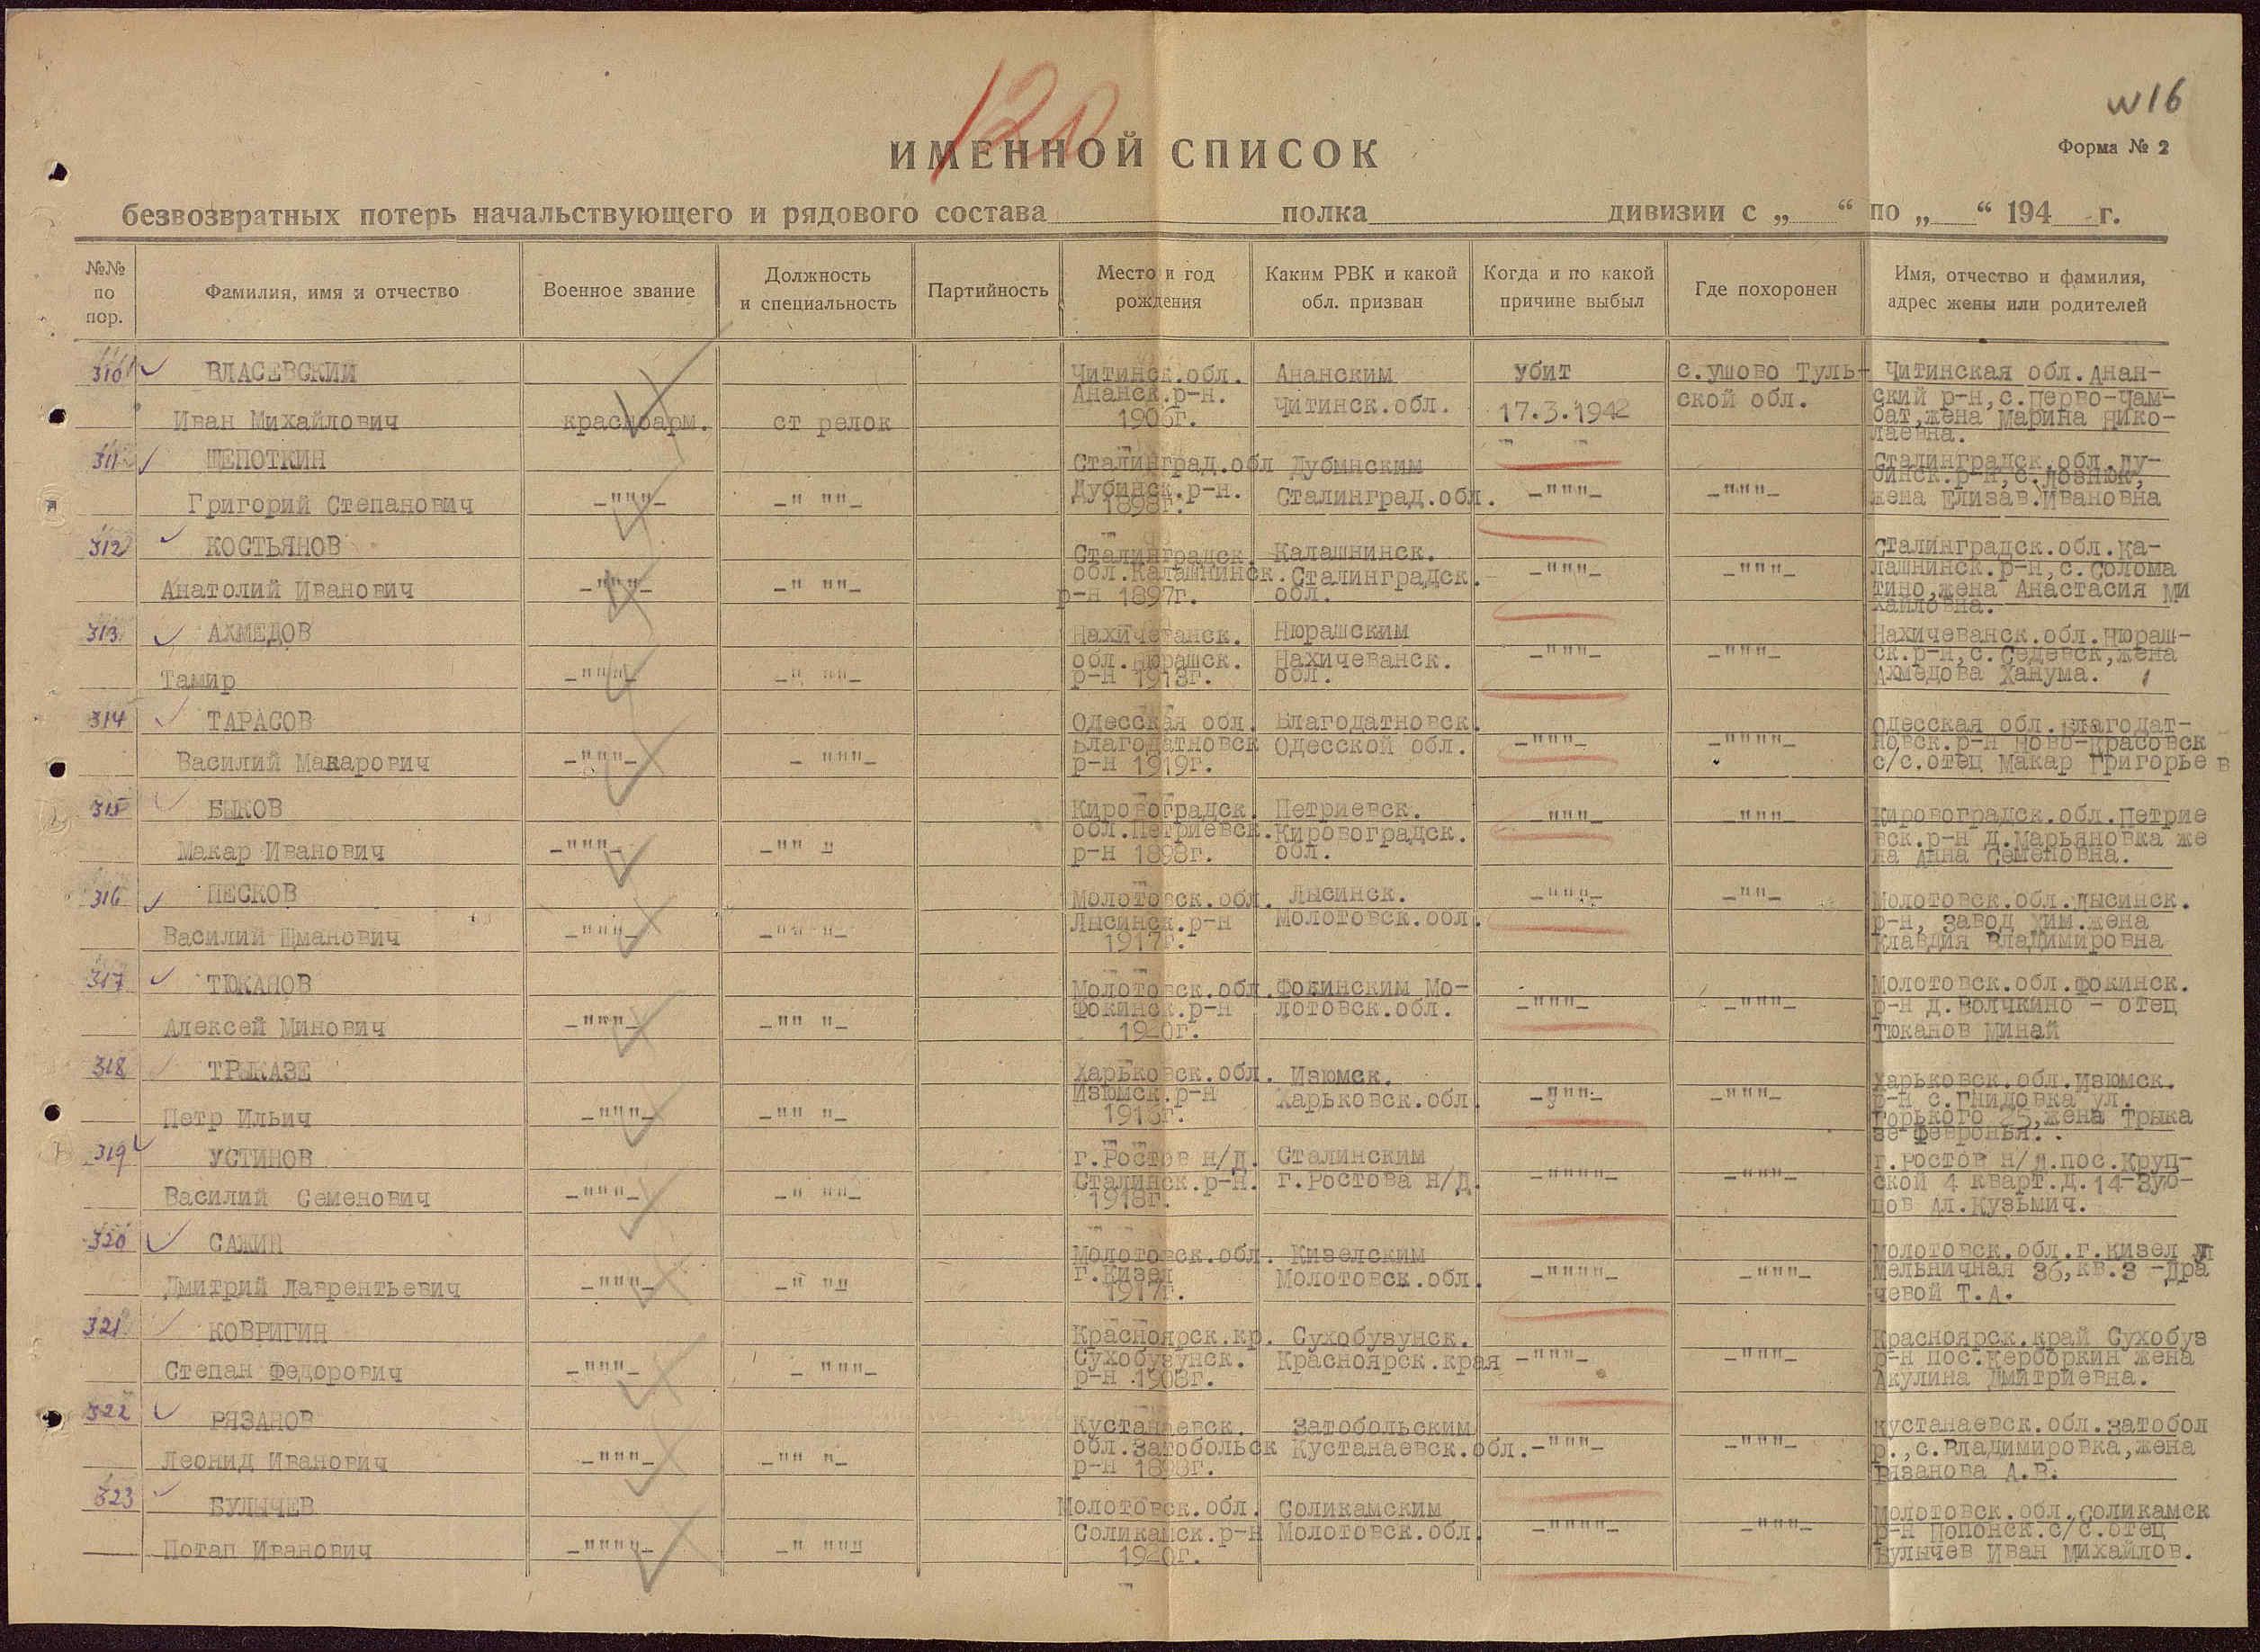 120
w16
ИМЕННОЙ СПИСОК
Форма № 2
безвозвратных потерь начальствующего и рядового состава полка дивизии с „ “ по „ “ 194 г.
№№ по пор.
Фамилия, имя и отчество
Военное звание
Должность и специальность
Партийность
Место и год рождения
Каким РВК и какой обл. призван
Когда и по какой причине выбыл
Где похоронен
Имя, отчество и фамилия, адрес жены или родителей
310 ВЛАСЕВСКИЙ
Иван Михайлович
красноарм.
ст релок
Читинск.обл.
Ананск.р-н.
1906г.
Ананским
Читинск.обл.
убит
17.3.1942
с.ушово Туль-
ской обл.
Читинская обл.Анан-
ский р-н,с.Перво-Чам-
бат,жена Марина Нико-
лаевна.
311 ЩЕПОТКИН
Григорий Степанович
-"""-
-" ""-
Сталинград.обл
Дубинск.р-н.
1898г.
Дубинским
Сталинград.обл.
-"""-
-"""-
Сталинградск.обл.Ду-
бинск.р-н,с.Лознюк,
жена Елизав.Ивановна
312 КОСТЬЯНОВ
Анатолий Иванович
-"""-
-" ""-
Сталинградск.
обл.Калашнинск.
р-н 1897г.
Калашнинск.
Сталинградск.
обл.
-"""-
-"""-
Сталинградск.обл.Ка-
лашнинск.р-н,с.Солома
тино,жена Анастасия Ми
хайловна.
313 АХМЕДОВ
Тамир
-"""-
-" ""-
Нахичеванск.
обл.Нюрашск.
р-н 1913г.
Нюрашским
Нахичеванск.
обл.
-"""-
-"""-
Нахичеванск.обл.Нюраш-
ск.р-н,с.Седевск,жена
Ахмедова Ханума.
314 ТАРАСОВ
Василий Макарович
-"""-
- """-
Одесская обл.
Благодатновск
р-н 1919г.
Благодатновск.
Одесской обл.
-"""-
-""""-
Одесская обл.Благодат-
новск.р-н Ново-Красовск
с/с.отец Макар Григорье в
315 БЫКОВ
Макар Иванович
-"""-
-"" "
Кировоградск.
обл.Петриевск.
р-н 1898г.
Петриевск.
Кировоградск.
обл.
-"""-
-"""-
Кировоградск.обл.Петрие
вск.р-н Д.Марьяновка же
на Анна Семеновна.
316 ПЕСКОВ
Василий Шманович
-"""-
-"" "-
Молотовск.обл.
Лысинск.р-н
1917г.
Лысинск.
Молотовск.обл.
-"""-
-""-
Молотовск.обл.Лысинск.
р-н, завод хим.жена
Клавдия Владимировна
317 ТЮКАНОВ
Алексей Минович
-"""-
-"" "-
Молотовск.обл.
Фокинск.р-н
1920г.
Фокинским Мо-
лотовск.обл.
-"""-
-"""-
Молотовск.обл.Фокинск.
р-н д.Волчкино - отец
Тюканов Минай
318 ТРЫКАЗЕ
Петр Ильич
-"""-
-"" "-
Харьковск.обл.
Изюмск.р-н
Изюмск.
Харьковск.обл
-"""-
-"""-
Харьковск.обл.Изюмск.
р-н с.Гнидовка ул.
Горького 25,жена Трыка
зе Февронья.
319 УСТИНОВ
Василий Семенович
-"""-
-" ""-
г.Ростов н/Д.
Сталинск.р-н.
1918г.
Сталинским
г.Ростова н/Д.
-""""-
-"""-
г.Ростов н/Д.пос.Круп-
ской 4 кварт.Д.14-Зуб-
цов Ал.Кузьмич.
320 САЖИН
Дмитрий Лаврентьевич
-"""-
-" ""
Молотовск.обл.
г.Кизел
1917г.
Кизелским
Молотовск.обл.
-""""-
-"""-
Молотовск.обл.г.Кизел ул
Мельничная 36,кв.3 -Дра
чевой Т.А.
321 КОВРИГИН
Степан Федорович
-"""-
- """-
Красноярск.кр.
Сухобузунск.
р-н 1908г.
Сухобузунск.
Красноярск.края
-"""-
-"""-
Красноярск.край Сухобуз
р-н пос.Керборкин жена
Акулина Дмитриевна.
322 РЯЗАНОВ
Леонид Иванович
-"""-
-"" "-
Кустанаевск.
обл.Затобольск
р-н 1898г.
Затобольским
Кустанаевск.обл.
-"""-
-"""-
Кустанаевск.обл.Затобол
р.,с.Владимировка,жена
Рязанова А.В.
323 БУЛЫЧЕВ
Потап Иванович
-""""-
-" """
Молотовск.обл.
Соликамск.р-н
1920г.
Соликамским
Молотовск.обл.
-""""-
-"""-
Молотовск.обл.Соликамск
р-н Попонск.с/с.отец
Булычев Иван Михайлов.